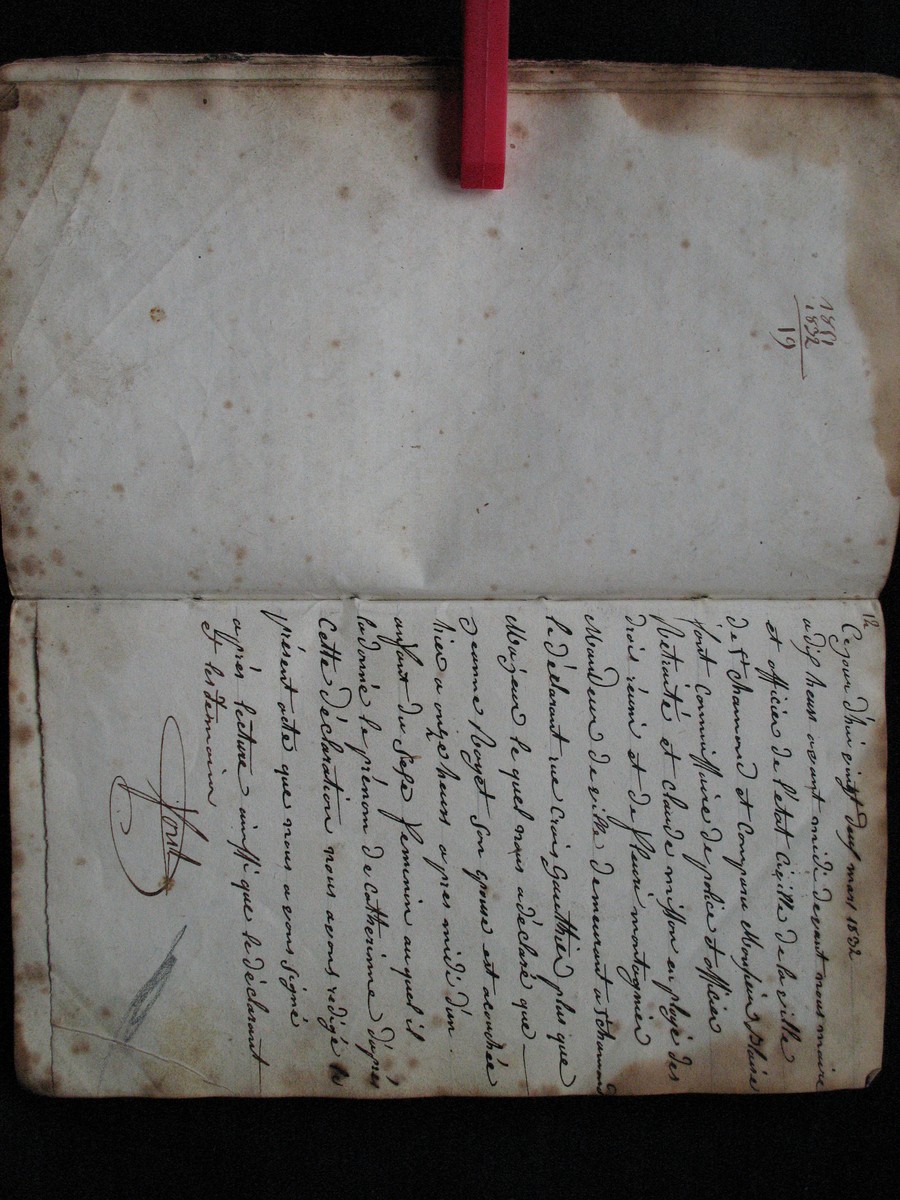 1851
1832
19
12
Ce jour d'hui vingt deux mars 1832
a dix heurs avant midi devant nous maire
et officier de l'etat Civille de la ville
de St chamond et Comparu Monsieur Blaise
font commissaire de police et officier
Retraité et Claude misson employé des
drois réuni et de fleuri montagnier
Mandeur de ville demeurant a St chamond
le déclarant rue Croix Gauthier plus que
Majeur le quel nous a déclaré que
Jeanne Royet son epouse est acouchée
hier a onze heurs apres midi d'un
enfant du sexe feminin auquel il
la donné le prénom de Catherinne d'apres
Cette déclaration nous avons redigé le
présent acte que nous avons signé
après lecture ainssi que le déclarant
Et les temoins
font